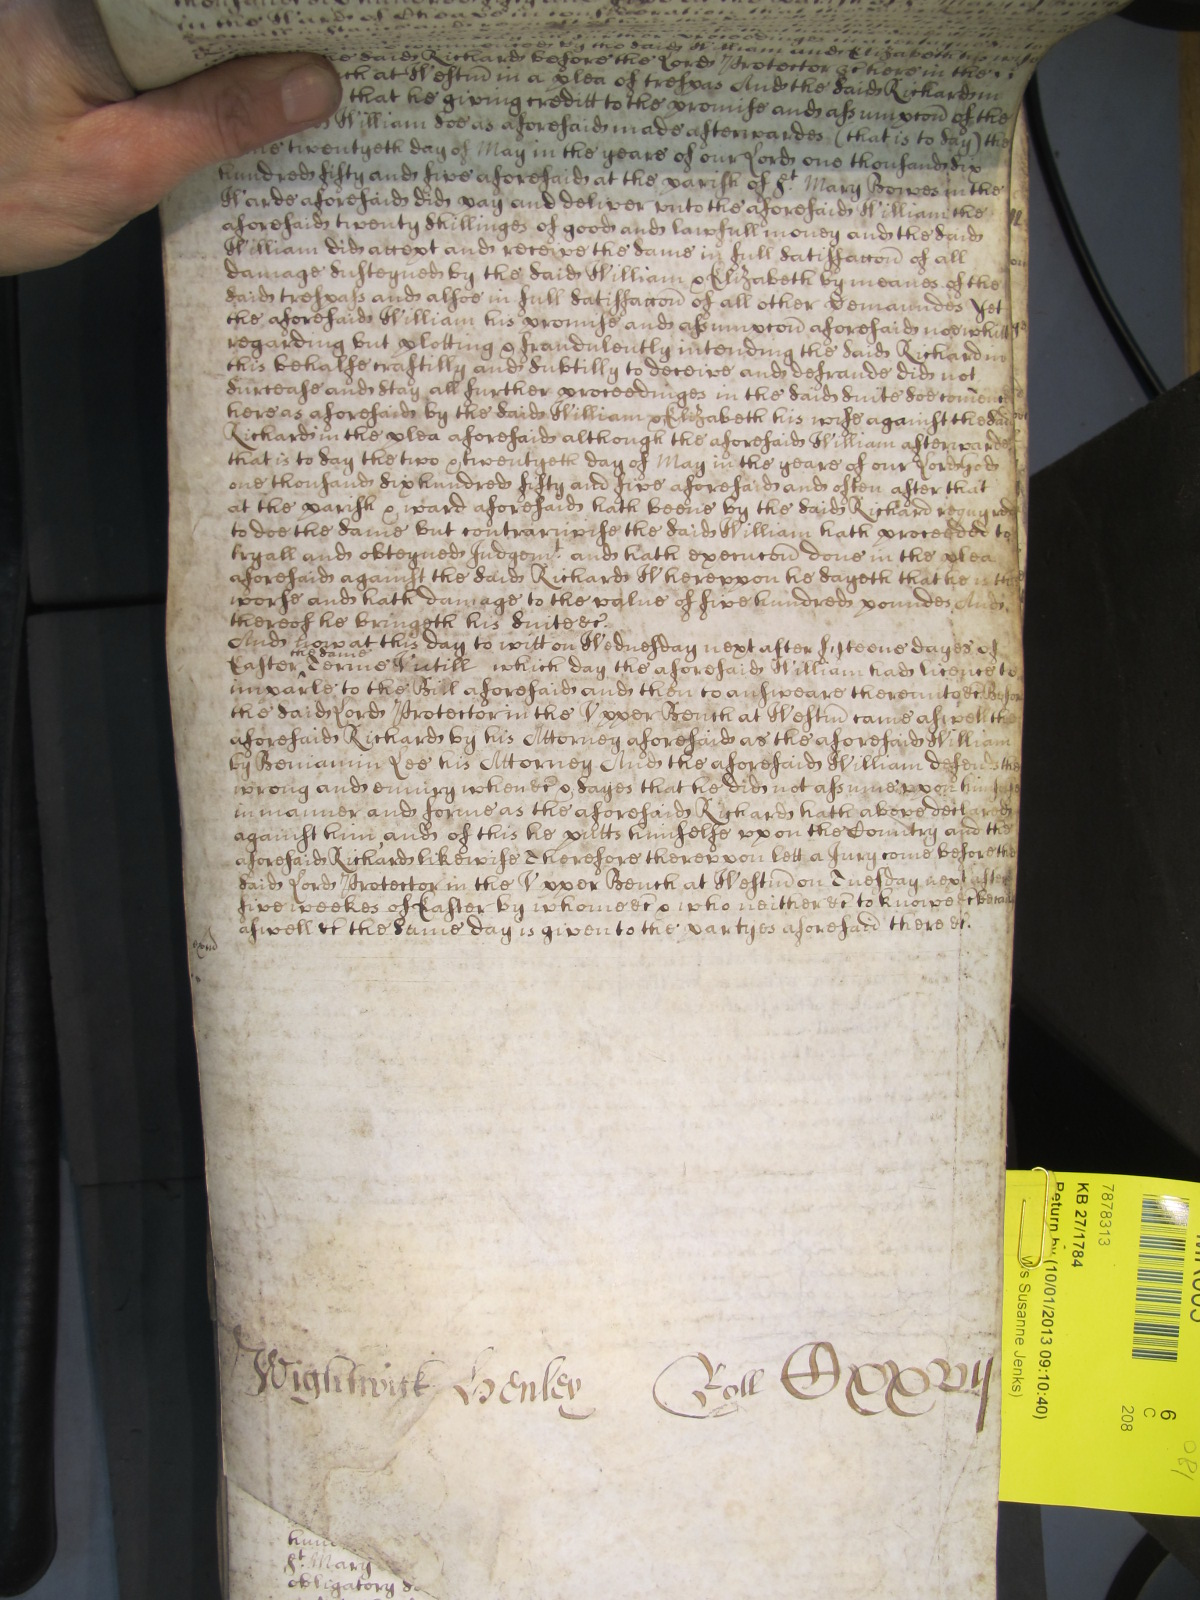 in the Warde of Cheape in consideration
by the said William and Elizabeth his wife
said Richard before the Lord Protector &c here in the
at Westm̃ in a plea of trespas And the said Richard in
that he giving creditt to the promise and assumpcõn of the
William soe as aforesaid made afterwardes (that is to say) the
twentyeth day of May in the yeare of our Lord one thousand six
hundred fifty and five aforesaid at the parish of St Mary Bowes in the
Warde aforesaid did pay and deliver unto the aforesaid William the
aforesaid twenty shillinges of good and lawfull money and the said
William did accept and receive the same in full satisfaccõn of all
damage susteyned by the said William & Elizabeth by meanes of the
said trespass and alsoe in full satisfaccõn of all other demaundes Yet
the aforesaid William his promise and assumpcõn aforesaid noe whitt
regarding but plotting & fraudulently intending the said Richard in
this behalfe craftilly and subtilly to deceive and defraude did not
surcease and stay all further proceedinges in the said suite soe comenc
here as aforesaid by the said William & Elizabeth his wife against the said
Richard in the plea aforesaid although the aforesaid William afterwardes
that is to say the two & twentyeth day of May in the yeare of our Lord God
one thousand six hundred fifty and five aforesaid and often after that
at the parish & ward aforesaid hath beene by the said Richard requyred
to doe the same but contrariwise the said William hath proceeded to
tryall and obteyned Judgemt and hath execucõn done in the plea
aforesaid against the said Richard Whereuppon he sayeth that he is the
worse and hath damage to the value of five hundred poundes And
thereof he bringeth his suite &c.
And now at this day to witt on Wednesday next after fifteene dayes of
Easter the same Terme Untill which day the aforesaid William had licence to
imparle to the Bill aforesaid and then to answeare thereunto &c Before
the said Lord Protector in the Upper Bench at Westm̃ came aswell the
aforesaid Richard by his Attorney aforesaid as the aforesaid William
by Beniamin Lee his Attorney And the aforesaid William defends the
wrong and eniury when &c & sayes that he did not assume uppon himselfe
in manner and forme as the aforesaid Richard hath above declared
against him and of this he putts himselfe uppon the Country and the
aforesaid Richard likewise Therefore thereuppon lett a Jury come before the
said Lord Protector in the Upper Bench at Westm̃ on Tuesday next after
five weekes of Easter by whome &c & who neither &c to knowe &c because
aswell &c the same day is given to the partyes aforesaid there &c.
Wightwick Henley Roll CXXVII
St Mary
obligatory
7878313
KB 27/1784
Return by (10/01/2013 09:10:40)
Ms Susanne Jenks)
6
C
208